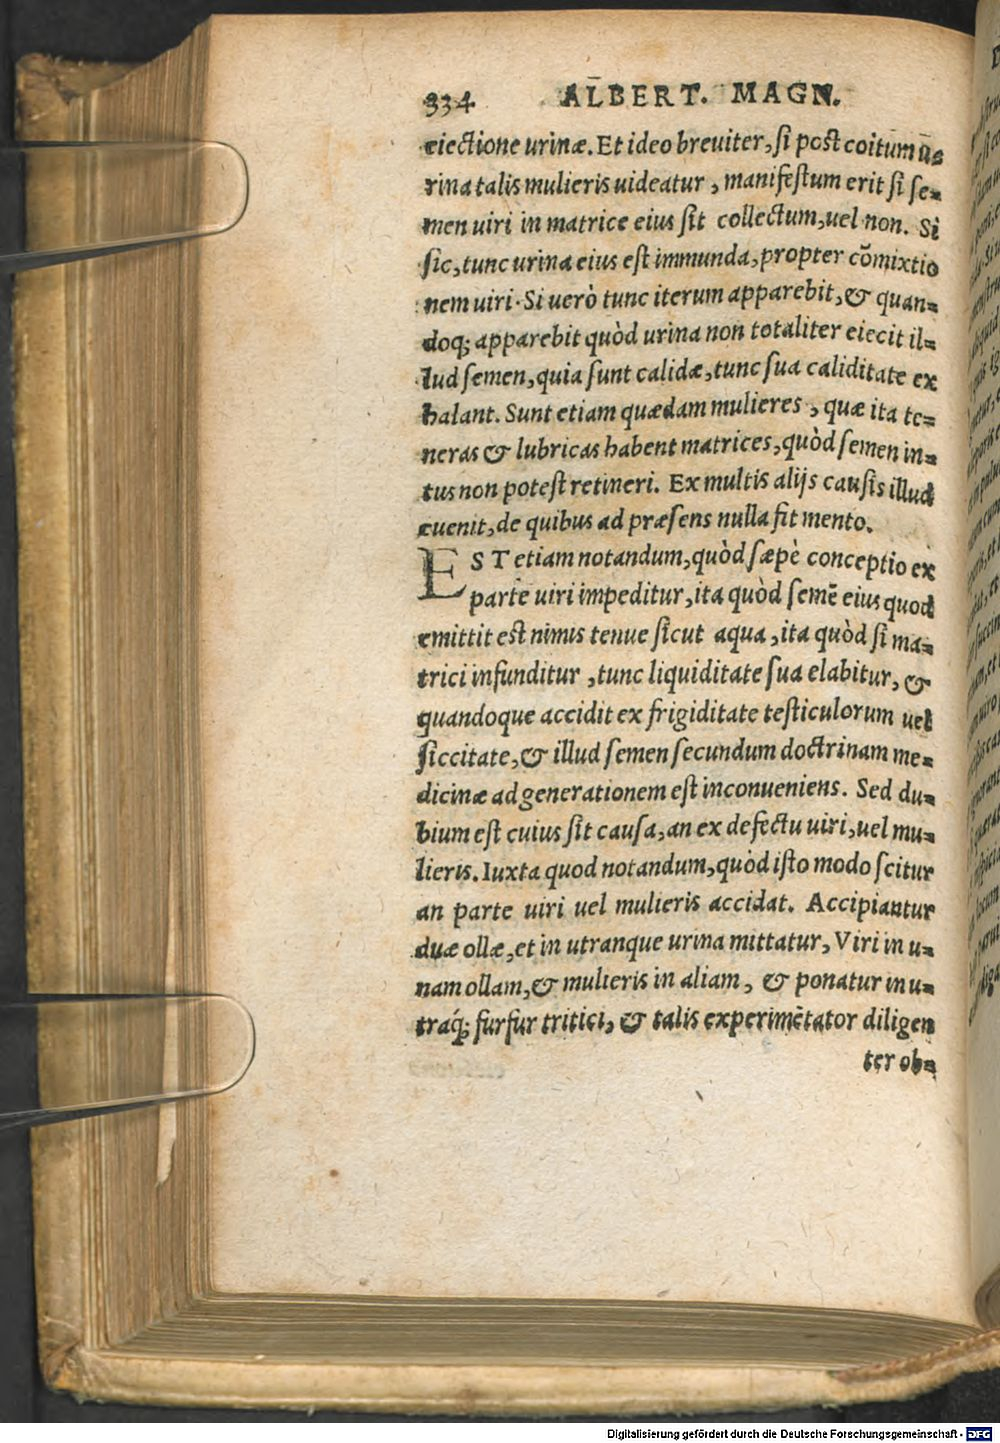 334 ALBERT. MAGN.
eiectione urinæ. Et ideo breuiter, ſi poſt coitum u=
rina talis mulieris uideatur, manifeſtum erit ſi ſe=
men uiri in matrice eius ſit collectum, uel non. Si
ſic, tunc urina eius eſt immunda, propter cōmixtio
nem uiri. Si uerò tunc iterum apparebit, & quan=
doq; apparebit quòd urina non totaliter eiecit il=
lud ſemen, quia ſunt calidæ, tunc ſua caliditate ex
halant. Sunt etiam quædam mulieres, quæ ita te=
neras & lubricas habent matrices, quòd ſemen in=
tus non poteſt retineri. Ex multis alijs cauſis illud
euenit, de quibus ad præſens nulla fit mento.
EST etiam notandum, quòd ſæpè conceptio ex
parte uiri impeditur, ita quòd ſemē eius quod
emittit eſt nimis tenue ſicut aqua, ita quòd ſi ma=
trici infunditur, tunc liquiditate ſua elabitur, &
quandoque accidit ex frigiditate teſticulorum uel
ſiccitate, & illud ſemen ſecundum doctrinam me=
dicinæ ad generationem eſt inconueniens. Sed du=
bium eſt cuius ſit cauſa, an ex defectu uiri, uel mu=
lieris. Iuxta quod notandum, quòd iſto modo ſcitur
an parte uiri uel mulieris accidat. Accipiantur
duæ ollæ, et in utranque urina mittatur, Viri in u=
nam ollam, & mulieris in aliam, & ponatur in u=
traq́; furfur tritici, & talis experimētator diligen
ter ob=
Digitalisierung gefördert durch die Deutsche Forschungsgemeinschaft - DFG